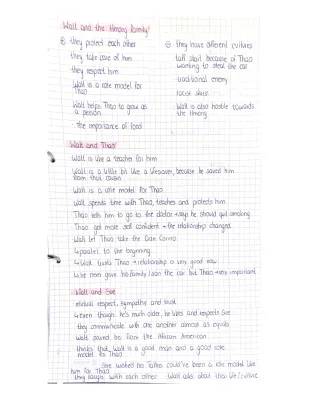 Walt and the Hmong family
⊕ they protect each other
they take care of him
they respect him
Walt is a role model for
Thao
Walt helps Thao to grow as
a person
- the importance of food
⊖ they have different cultures
bad start because of Thao
wanting to steal the car
traditional enemy
racist slurs
Walt is also hostile towards
the Hmong
Walt and Thao
Walt is like a teacher for him
Walt is a little bit like a lifesaver, because he saved him
from that cousin
Walt is a role model for Thao
Walt spends time with Thao, teaches and protects him
Thao tells him to go to the doctor + says he should quit smoking
Thao get more self confident → the relationship changed
Walt let Thao take the Gran Torino
↳ parallel to the beginning
↳ Walt trusts Thao → relationship is very good now
↳ he even gave his family loan the car but Thao → very important
Walt and Sue
mutual respect, sympathy and trust
↳ even though he's much older, he likes and respects Sue
they communicate with one another almost as equals
Walt saved her from the African American
thinks that Walt is a good man and a good role
model for Thao
She wished her father could've been a role model like
him for Thao
they laugh with each other
Walt asks about the life/culture